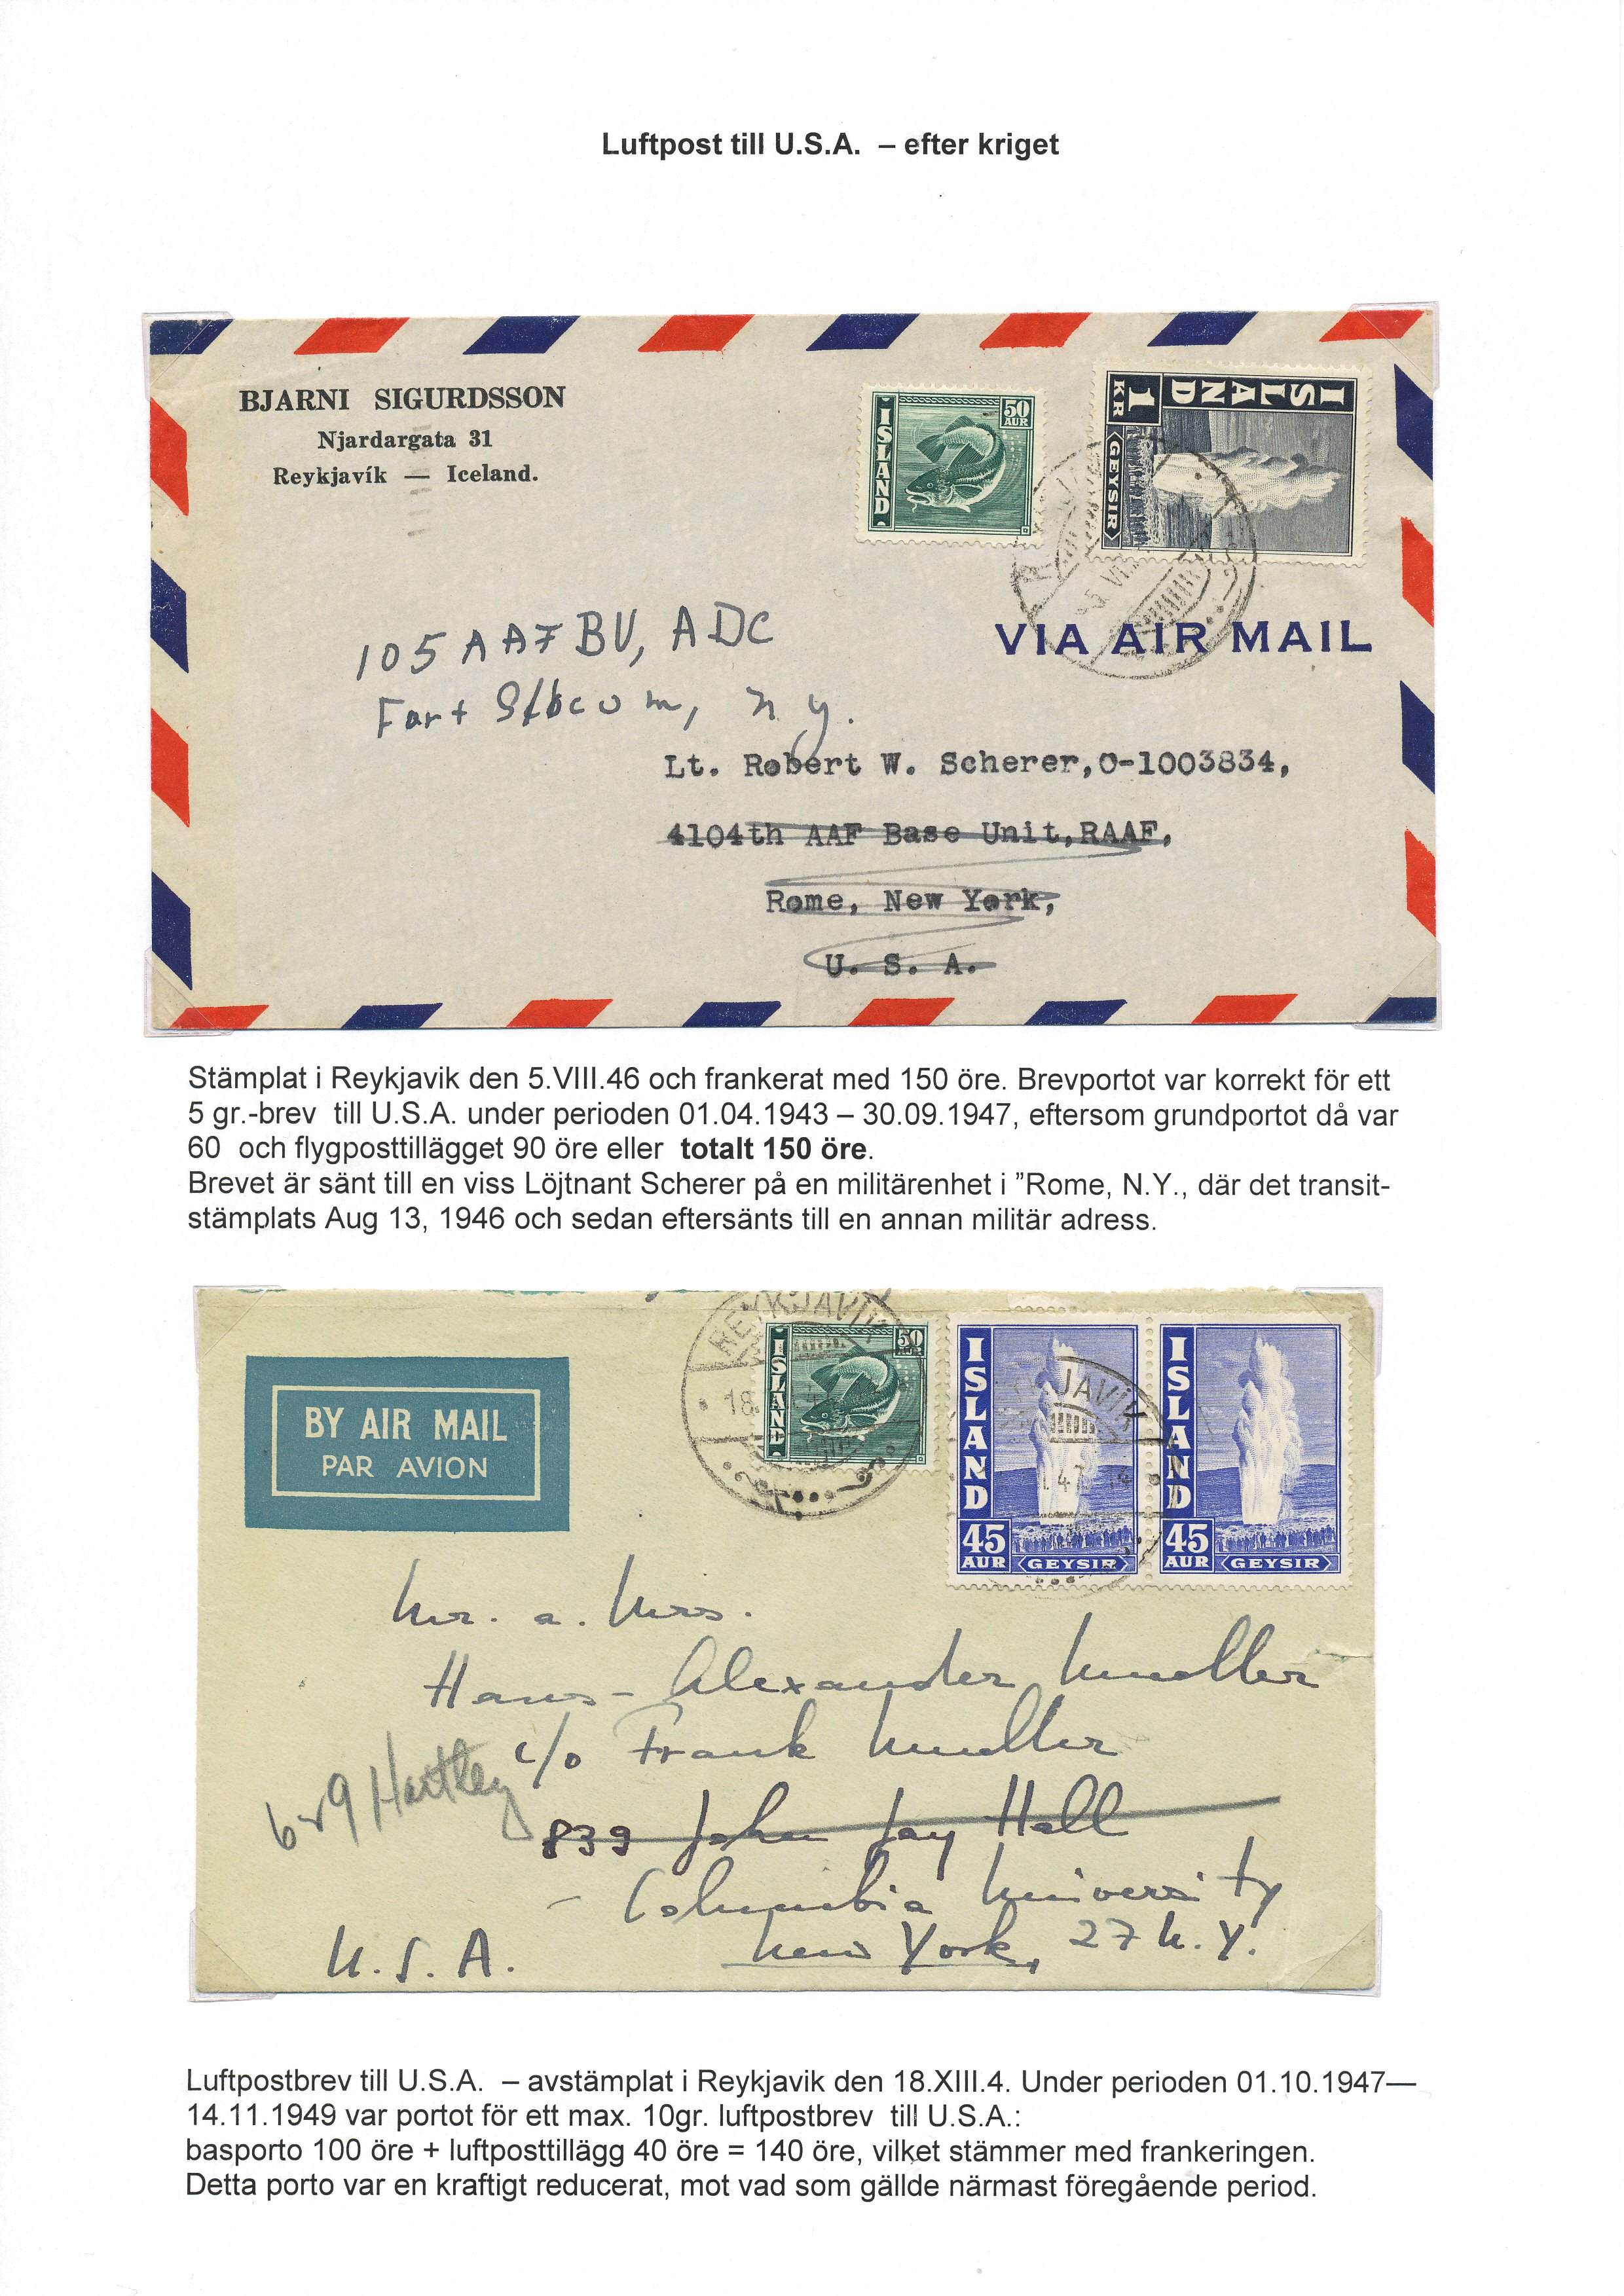 Luftpost till U.S.A. – efter kriget
BJARNI SIGURDSSON
Njardargata 31
Reykjavík — Iceland.
50
AUR
ISLAND
ISLAND
1
KR
GEYSIR
5. VI
VIA AIR MAIL
105 AAF BU, ADC
Fort Slocum, N.Y.
Lt. Robert W. Scherer,O-1003834,
4104th AAF Base Unit,RAAF,
Rome, New York,
U. S. A.
Stämplat i Reykjavik den 5.VIII.46 och frankerat med 150 öre. Brevportot var korrekt för ett
5 gr.-brev till U.S.A. under perioden 01.04.1943 – 30.09.1947, eftersom grundportot då var
60 och flygposttillägget 90 öre eller totalt 150 öre.
Brevet är sänt till en viss Löjtnant Scherer på en militärenhet i ”Rome, N.Y., där det transit-
stämplats Aug 13, 1946 och sedan eftersänts till en annan militär adress.
BY AIR MAIL
PAR AVION
REYKJAVÍK
18.
50
AUR
ISLAND
ISLAND
45
AUR
GEYSIR
ISLAND
45
AUR
GEYSIR
Mr. a. Mrs.
Hans-Alexander Mueller
c/o Frank Mueller
Hartley
839 John Jay Hall
Columbia University
New York, 27 N.Y.
U.S.A.
Luftpostbrev till U.S.A. – avstämplat i Reykjavik den 18.XIII.4. Under perioden 01.10.1947—
14.11.1949 var portot för ett max. 10gr. luftpostbrev till U.S.A.:
basporto 100 öre + luftposttillägg 40 öre = 140 öre, vilket stämmer med frankeringen.
Detta porto var en kraftigt reducerat, mot vad som gällde närmast föregående period.